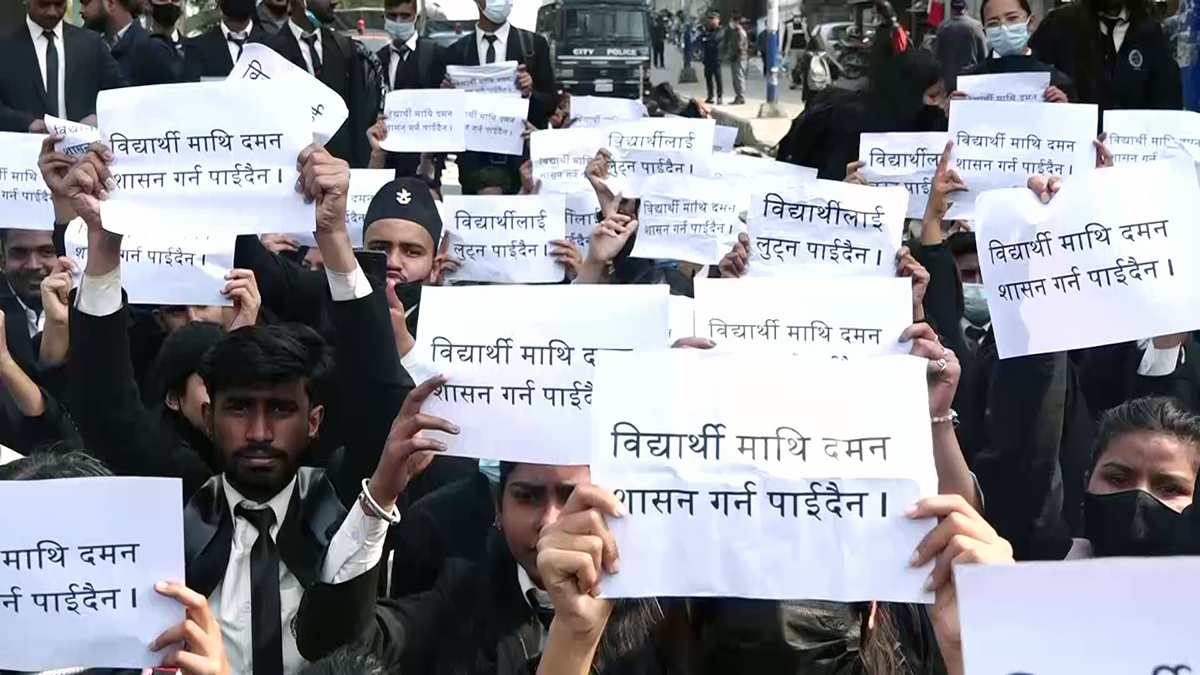 CITY POLICE
विद्यार्थी माथि दमन
शासन गर्न पाईदैन ।
शासन गर्न पाईदैन ।
विद्यार्थी माथि दमन
शासन गर्न पाईदैन ।
विद्यार्थीलाई
लुट्न पाईदैन ।
विद्यार्थी माथि दमन
शासन गर्न पाईदैन ।
विद्यार्थीलाई
लुट्न पाईदैन ।
विद्यार्थी माथि दमन
शासन गर्न पाईदैन ।
विद्यार्थीलाई
लुट्न पाईदैन ।
विद्यार्थी माथि दमन
शासन गर्न पाईदैन ।
विद्यार्थी माथि दमन
शासन गर्न पाईदैन ।
विद्यार्थी माथि
शासन गर्न
विद्यार्थी माथि दमन
विद्यार्थी माथि दमन
शासन गर्न पाईदैन ।
माथि दमन
पाईदैन ।